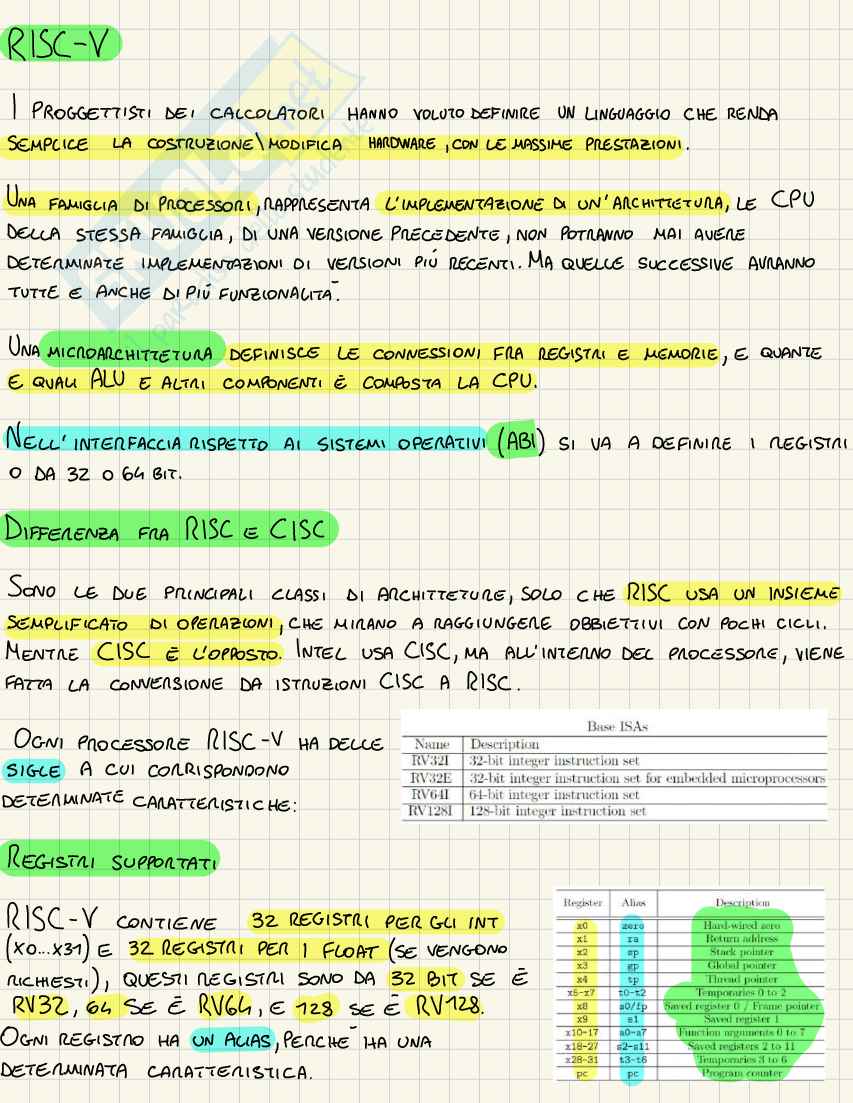 RISC-V
I PROGGETTISTI DEI CALCOLATORI HANNO VOLUTO DEFINIRE UN LINGUAGGIO CHE RENDA
SEMPLICE LA COSTRUZIONE\MODIFICA HARDWARE, CON LE MASSIME PRESTAZIONI.
UNA FAMIGLIA DI PROCESSORI, RAPPRESENTA L'IMPLEMENTAZIONE DI UN'ARCHITTETURA, LE CPU
DELLA STESSA FAMIGLIA, DI UNA VERSIONE PRECEDENTE, NON POTRANNO MAI AVERE
DETERMINATE IMPLEMENTAZIONI DI VERSIONI PIÚ RECENTI. MA QUELLE SUCCESSIVE AVRANNO
TUTTE E ANCHE DI PIÚ FUNZIONALITA'.
UNA MICROARCHITTETURA DEFINISCE LE CONNESSIONI FRA REGISTRI E MEMORIE, E QUANTE
E QUALI ALU E ALTRI COMPONENTI È COMPOSTA LA CPU.
NELL'INTERFACCIA RISPETTO AI SISTEMI OPERATIVI (ABI) SI VA A DEFINIRE I REGISTRI
O DA 32 O 64 BIT.
DIFFERENZA FRA RISC E CISC
SONO LE DUE PRINCIPALI CLASSI DI ARCHITTETURE, SOLO CHE RISC USA UN INSIEME
SEMPLIFICATO DI OPERAZIONI, CHE MIRANO A RAGGIUNGERE OBBIETTIVI CON POCHI CICLI.
MENTRE CISC È L'OPPOSTO. INTEL USA CISC, MA ALL'INTERNO DEL PROCESSORE, VIENE
FATTA LA CONVERSIONE DA ISTRUZIONI CISC A RISC.
OGNI PROCESSORE RISC-V HA DELLE
SIGLE A CUI CORRISPONDONO
DETERMINATE CARATTERISTICHE:
Base ISAs
Name Description
RV32I 32-bit integer instruction set
RV32E 32-bit integer instruction set for embedded microprocessors
RV64I 64-bit integer instruction set
RV128I 128-bit integer instruction set
REGISTRI SUPPORTATI
RISC-V CONTIENE 32 REGISTRI PER GLI INT
(X0...X31) E 32 REGISTRI PER I FLOAT (SE VENGONO
RICHESTI), QUESTI REGISTRI SONO DA 32 BIT SE È
RV32, 64 SE È RV64, E 128 SE È RV128.
OGNI REGISTRO HA UN ALIAS, PERCHE' HA UNA
DETERMINATA CARATTERISTICA.
Register Alias Description
x0 zero Hard-wired zero
x1 ra Return address
x2 sp Stack pointer
x3 gp Global pointer
x4 tp Thread pointer
x5-x7 t0-t2 Temporaries 0 to 2
x8 s0/fp Saved register 0 / Frame pointer
x9 s1 Saved register 1
x10-17 a0-a7 Function arguments 0 to 7
x18-27 s2-s11 Saved registers 2 to 11
x28-31 t3-t6 Temporaries 3 to 6
pc pc Program counter